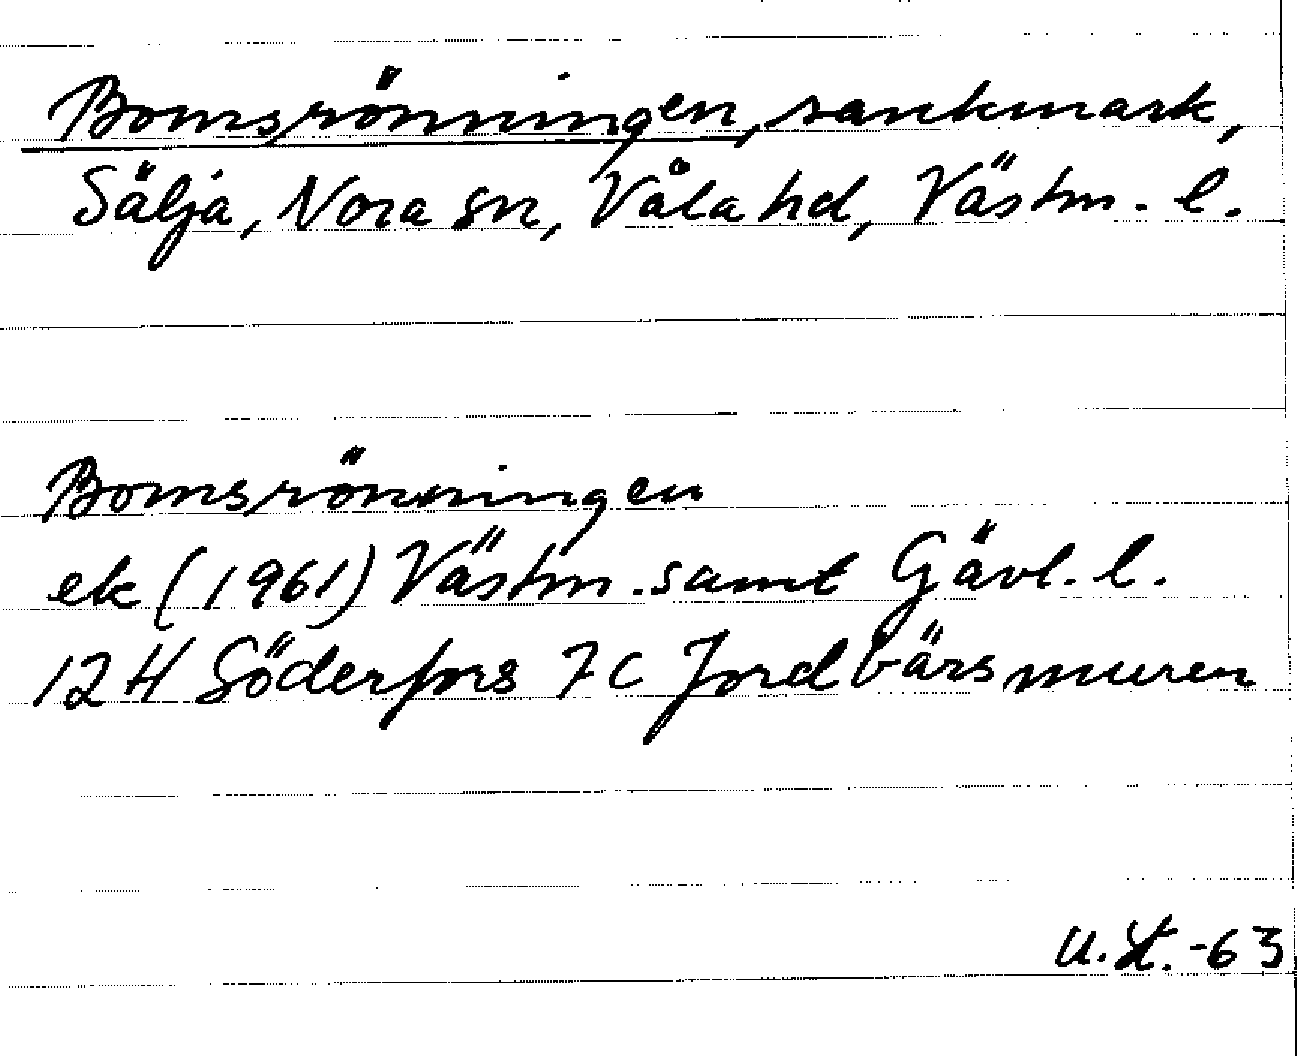 Bomsrönningen, sankmark,
Sälja, Nora sn, Våla hd, Västm. l.
Bomsrönningen
ek (1961) Västm. samt Gävl. l.
12 H Söderfors 7 c Jordbärsmuren
U. -63